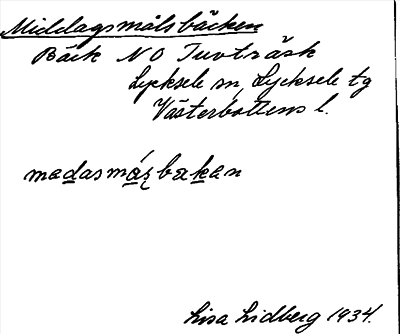 Middagsmålsbäcken
Bäck NO Tuvträsk
Lycksele sn, Lycksele tg
Västerbottens l.
Lisa Lidberg 1934.